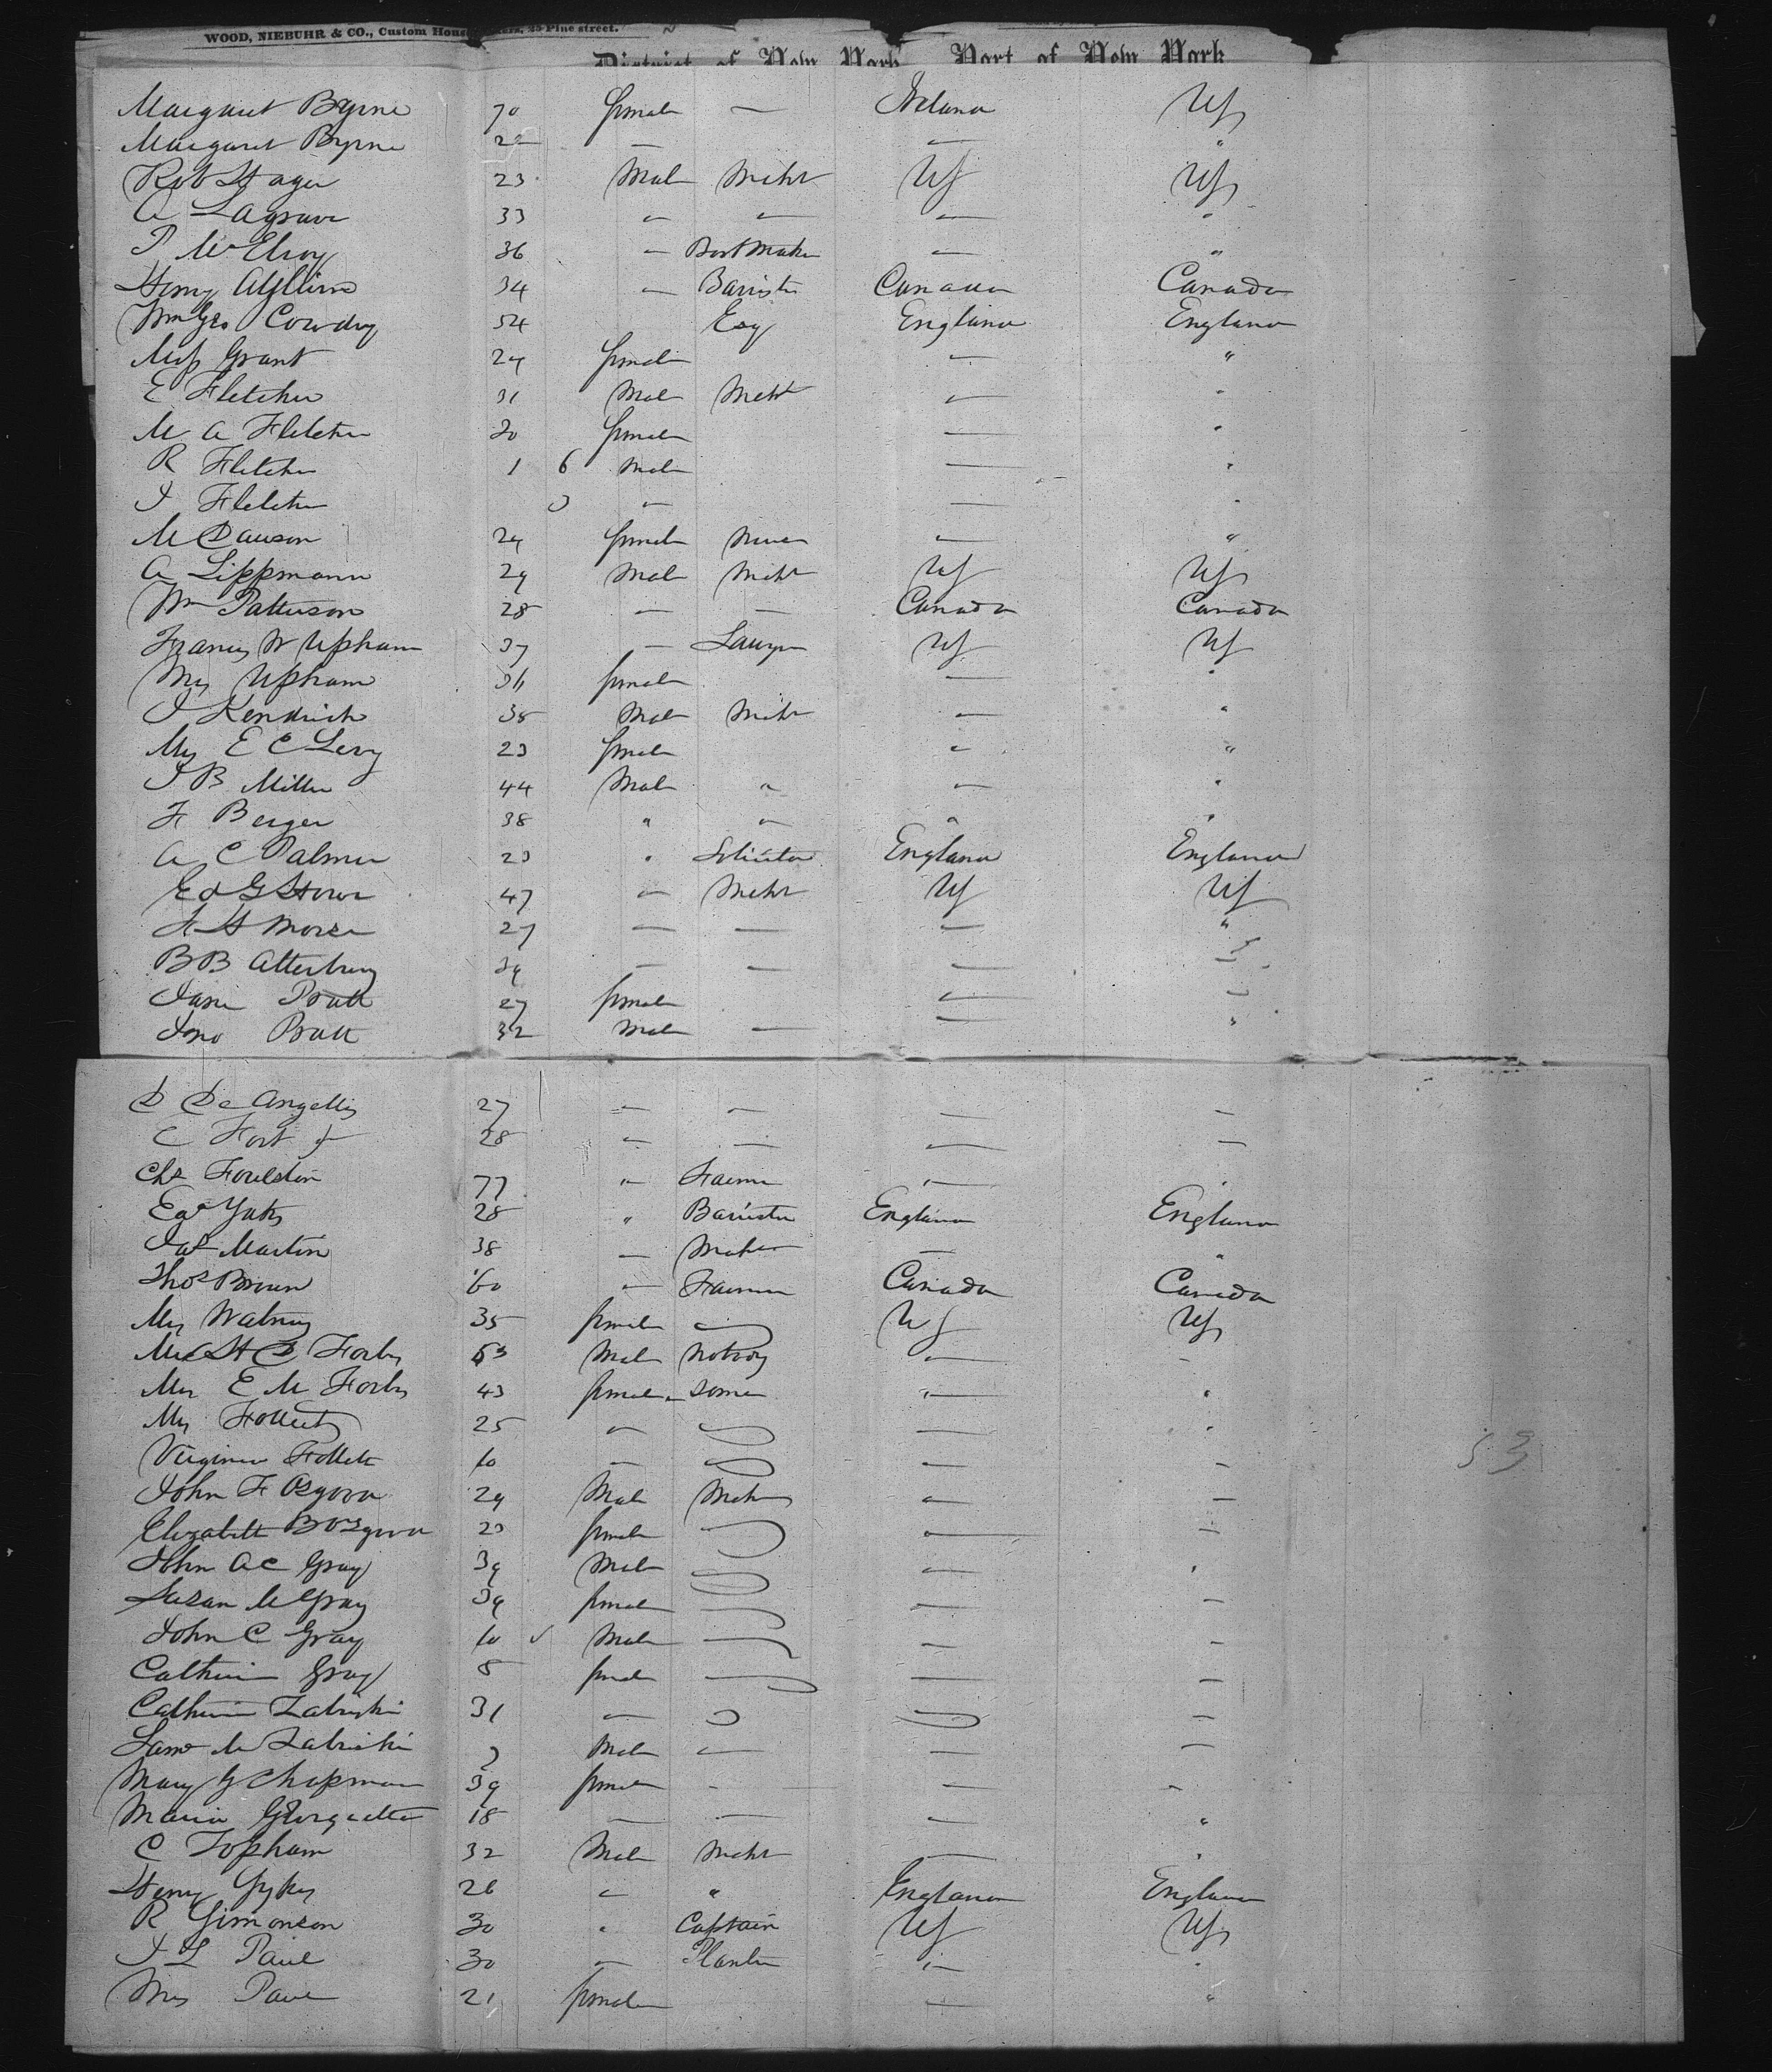 WOOD, NIEBUHR & CO., Custom House 25 Pine street.
District of New York Port of New York
Margaret Byrne 70 female — Ireland US
Margaret Byrne — — "
Robt Hager 23 Male Mcht US US
A Lagrave 33 " " — "
P McElroy 36 — Bootmaker — "
Henry 34 — Barrister Canada Canada
Wm Geo Cowdry 54 Esq England England
Miss Grant 24 female — "
E Fletcher 31 Male Mcht — "
M A Fletcher 30 female — "
R Fletcher 1 6 Male — "
J Fletcher 3 — — "
M Dawson 24 female Nurse — "
A Lippmann 29 Male Mcht US US
Wm Patterson 28 — — Canada Canada
Francis W Upham 37 — Lawyer US US
Mrs Upham 36 female — "
J Kendrick 38 Male Mcht — "
Mrs E C Levy 23 female " "
J B Miller 44 Male " — "
F Berger 38 " " " "
A C Palmer 23 " Solicitor England England
Ed G Howe 47 — Mcht US US
F H Morse 27 — — — "
B B Atterbury 39 — — — —
Jane Pratt 27 female — —
Jno Pratt 32 Male — — "
D De Angellis 27 — — — —
C Fort Jr 28 — — — —
Chs Foulston 77 " Farmer — "
Edd Yates 28 " Barrister England England
Jas Martin 38 — — "
Thos Brown 60 — Farmer Canada Canada
Mrs 35 female — US US
Mr H D Forbes 53 Male Notary — —
Mrs E M Forbes 43 female some — "
Mrs Follett 25 " — "
Virginia Follett 10 — — —
John F Osgood 29 Male Mcht — —
Elizabeth B Osgood 23 female — —
John A C Gray 39 Male — "
Susan M Gray 39 female — —
John C Gray 10 Male — —
Catherine Gray 8 female — —
Catherine Zabriskie 31 — —
M Zabriskie 3 Male — — —
Mary G Chapman 39 female — — —
Maria 18 — — — "
C Topham 32 Male Mcht — "
Henry 26 " " England England
R Simonson 30 " Captain US US
J L Paul 30 — Planter — "
Mrs Paul 21 female — "
53